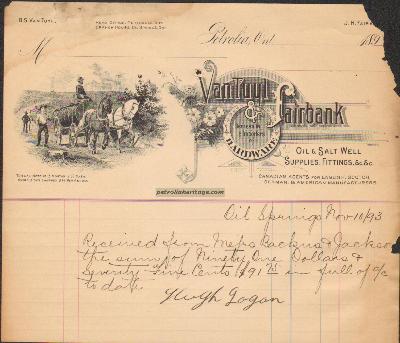 B.S. VAN TUYL.
HEAD OFFICE, PETROLIA, ONT.
BRANCH HOUSE, OIL SPRINGS, ONT.
J. H. FAIRBANK
M
Petrolia, Ont. 189
VanTuyl
& Fairbank
HARDWARE
OIL & SALT WELL
SUPPLIES, FITTINGS, &c &c.
CANADIAN AGENTS FOR
GERMAN, & AMERICAN MANUFACTURERS.
petroliaheritage.com
Oil Springs Nov 10/93
Received from Messrs Backus & Jackson
the sum of Ninety One Dollars &
Seventy Five Cents $91 75 in full of a/c
to date
Hugh Gogan